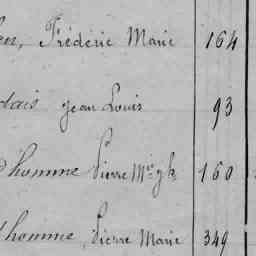 Frédéric Marie 164
dais Jean Louis 93
homme Pierre 160
homme, Pierre Marie 349